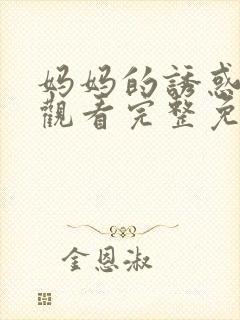 妈妈的誘惑
觀看完整免
金恩淑